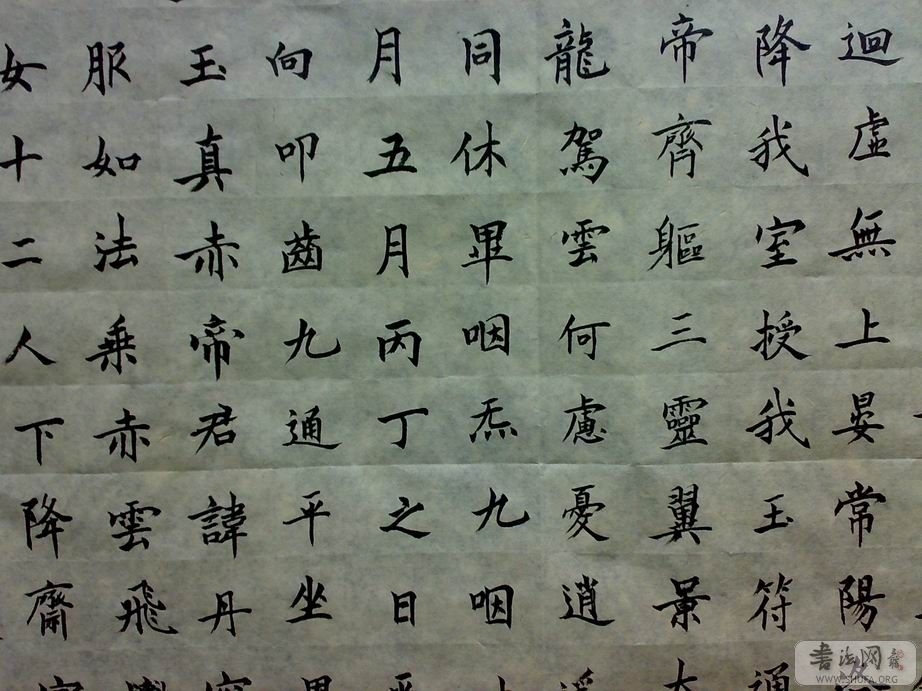 迴虛無上晏常陽
降我室授我玉符通
帝齊軀三靈翼景大
龍駕雲何慮憂逍遥
同休畢咽炁九咽
月五月丙丁之日平
向叩齒九通平坐思
玉真赤帝君諱丹容
服如法乘赤雲飛
女十二人下降齋室
書法网
WWW.SHUFA.ORG